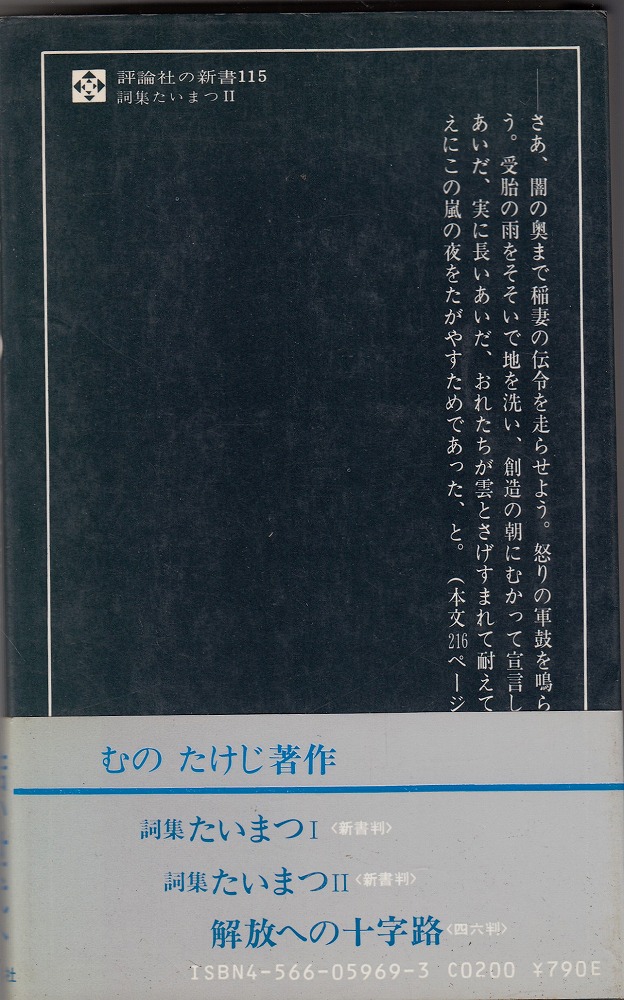 評論社の新書115
詞集たいまつII
――さあ、闇の奥まで稲妻の伝令を走らせよう。怒りの軍鼓を鳴ら
う。受胎の雨をそそいで地を洗い、創造の朝にむかって宣言し
あいだ、実に長いあいだ、おれたちが雲とさげすまれて耐えて
えにこの嵐の夜をたがやすためであった、と。（本文216ページ
むの たけじ著作
詞集たいまつI〈新書判〉
詞集たいまつII〈新書判〉
解放への十字路〈四六判〉
ISBN4-566-05969-3 C0200 ¥790E
社